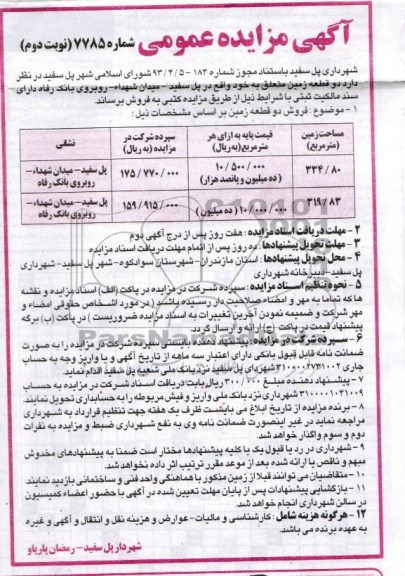 آگهی مزایده عمومی شماره ۷۷۸۵ (نوبت دوم)
شهرداری پل سفید باستناد مجوز شماره ۱۸۳ - ۹۳/۴/۵ شورای اسلامی شهر پل سفید در نظر
دارد دو قطعه زمین متعلق به خود واقع در پل سفید - میدان شهداء - روبروی بانک رفاه دارای
سند مالکیت ثبتی با شرایط ذیل از طریق مزایده کتبی به فروش برساند.
۱ - موضوع: فروش دو قطعه زمین بر اساس مشخصات ذیل:
مساحت زمین (مترمربع) قیمت پایه به ازای هر مترمربع (به ریال) سپرده شرکت در مزایده (به ریال) نشانی
۳۳۴/۸۰ ۱۰/۵۰۰/۰۰۰ (ده میلیون و پانصد هزار) ۱۷۵/۷۷۰/۰۰۰ پل سفید - میدان شهداء - روبروی بانک رفاه
۳۱۹/۸۳ ۱۰/۰۰۰/۰۰۰ (ده میلیون) ۱۵۹/۹۱۵/۰۰۰ پل سفید - میدان شهداء - روبروی بانک رفاه
۲ - مهلت دریافت اسناد مزایده: هفت روز پس از درج آگهی دوم
۳ - مهلت تحویل پیشنهادها: ده روز پس از اتمام مهلت دریافت اسناد مزایده
۴ - محل تحویل پیشنهادها: استان مازندران - شهرستان سوادکوه - شهر پل سفید - شهرداری
پل سفید - دبیرخانه شهرداری
۵ - نحوه تنظیم اسناد مزایده: سپرده شرکت در مزایده در پاکت (الف) اسناد مزایده و نقشه
ها که تماما به مهر و امضاء صلاحیت دار رسیده باشند (در مورد اشخاص حقوقی امضاء و
مهر شرکت و ضمیمه نمودن آخرین تغییرات به اسناد مزایده ضروریست) در پاکت (ب) برگه
پیشنهاد قیمت در پاکت (ج) ارائه و ارسال گردد.
۶ - سپرده شرکت در مزایده: پیشنهاد دهنده بایست سپرده شرکت در مزایده را به صورت
ضمانت نامه قابل قبول بانکی دارای اعتبار سه ماهه از تاریخ آگهی و یا واریز وجه به حساب
جاری ۳۱۰۰۰۰۲۷۳۱۰۰۲ شهرداری پل سفید نزد بانک ملی شعبه پل سفید اقدام نماید.
۷ - پیشنهاد دهنده مبلغ ۳۰۰/۰۰۰ ریال بابت دریافت اسناد شرکت در مزایده به حساب
۳۱۰۰۰۰۱۰۳۱۰۰۹ شهرداری نزد بانک ملی واریز و فیش مربوطه را به حسابداری تحویل نمایند.
۸ - برنده مزایده از تاریخ ابلاغ می بایست ظرف یک هفته جهت تنظیم قرارداد به شهرداری
مراجعه نماید در غیر اینصورت ضمانت نامه وی به نفع شهرداری ضبط و مزایده به نفرات
دوم و سوم واگذار خواهد شد.
۹ - شهرداری در رد یا قبول یک یا کلیه پیشنهادها مختار است ضمنا به پیشنهادهای مخدوش
مبهم و ناقص یا ارائه شده بعد از موعد مقرر ترتیب اثر داده نخواهد شد.
۱۰ - متقاضیان می توانند قبلا از زمین مذکور با هماهنگی واحد فنی و ساختمانی بازدید نمایند
۱۱ - بازگشایی پیشنهادات پس از پایان مهلت تعیین شده در آگهی با حضور اعضاء کمیسیون
در سالن شهرداری انجام خواهد شد.
۱۲ - هرگونه هزینه شامل: کارشناسی و مالیات - عوارض و هزینه نقل و انتقال و آگهی و غیره
به عهده برنده می باشد.
شهردار پل سفید - رمضان پاریاو